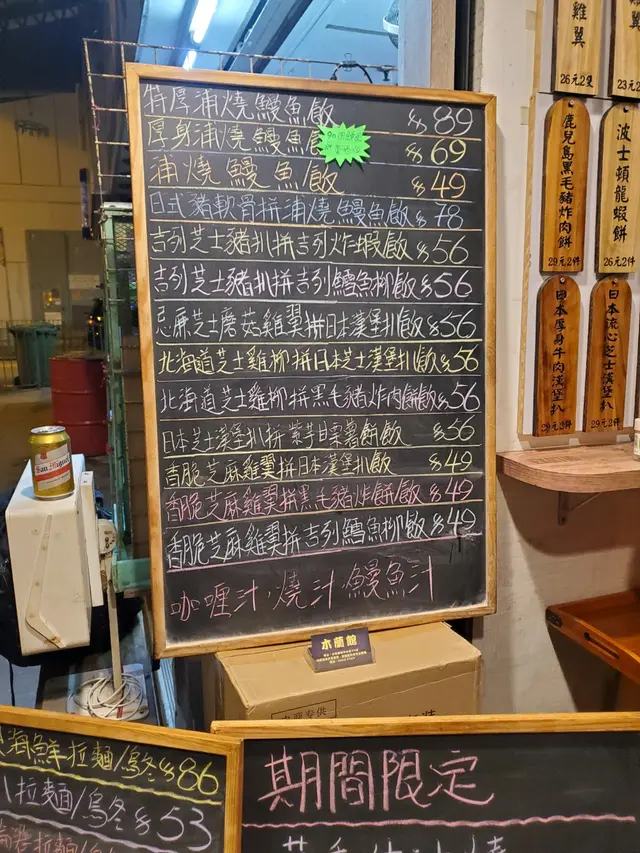 特厚浦燒鰻魚飯 $89
厚身浦燒鰻魚飯 $69
浦燒鰻魚飯 $49
日式豬軟骨拼浦燒鰻魚飯 $78
吉列芝士豬扒拼吉列炸蝦飯 $56
吉列芝士豬扒拼吉列鱈魚柳飯 $56
忌廉芝士蘑菇雞翼拼日本漢堡扒飯 $56
北海道芝士雞柳拼日本芝士漢堡扒飯 $56
北海道芝士雞柳拼黑毛豬炸肉餅飯 $56
日本芝士漢堡扒拼紫芋栗薯餅飯 $56
香脆芝麻雞翼拼日本漢堡扒飯 $49
香脆芝麻雞翼拼黑毛豬炸餅飯 $49
香脆芝麻雞翼拼吉列鱈魚柳飯 $49
咖喱汁·燒汁·鰻魚汁
木蘭館
San Miguel
雞翼
26元2隻
23元2
鹿兒島黑毛豬炸肉餅
29元2件
波士頓龍蝦餅
26元2件
日本厚身牛肉漢堡扒
29元2件
日本流心芝士漢堡扒
29元2件
海鮮拉麵/烏冬 $86
拉麵/烏冬 $53
期間限定